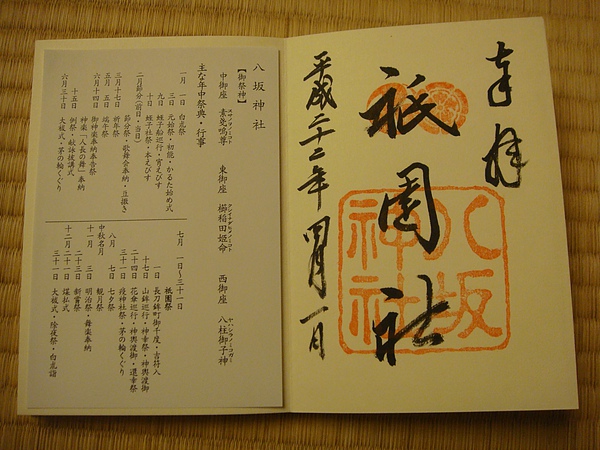 奉拝
祇園社
八坂神社
平成二十二年四月一日
八坂神社
【御祭神】
中御座 素戔嗚尊 東御座 櫛稲田姫命 西御座 八柱御子神
主な年中祭典・行事
一月 一日 白朮祭
三日 元始祭・初能・かるた始め式
九日 蛭子船巡行・宵えびす
十日 蛭子社祭・本えびす
二月節分(前日・当日)
節分祭・歌舞会奉納・豆撒き
三月十七日 祈年祭
五月 五日 端午祭
六月十四日 御神楽奉納奉告祭
神楽「人長の舞」奉納
十五日 例祭・献詠披講式
六月三十日 大祓式・茅の輪くぐり
七月 一日～三十一日
祇園祭
一日 長刀鉾町御千度・吉符入
十七日 山鉾巡行・神幸祭・神輿渡御
二十四日 花傘巡行・神輿渡御・還幸祭
三十一日 疫神社祭・茅の輪くぐり
八月 七日 七夕祭
中秋名月 観月祭
十一月 三日 明治祭・舞楽奉納
二十三日 新嘗祭
十二月二十一日 煤払式
三十一日 大祓式・除夜祭・白朮詣